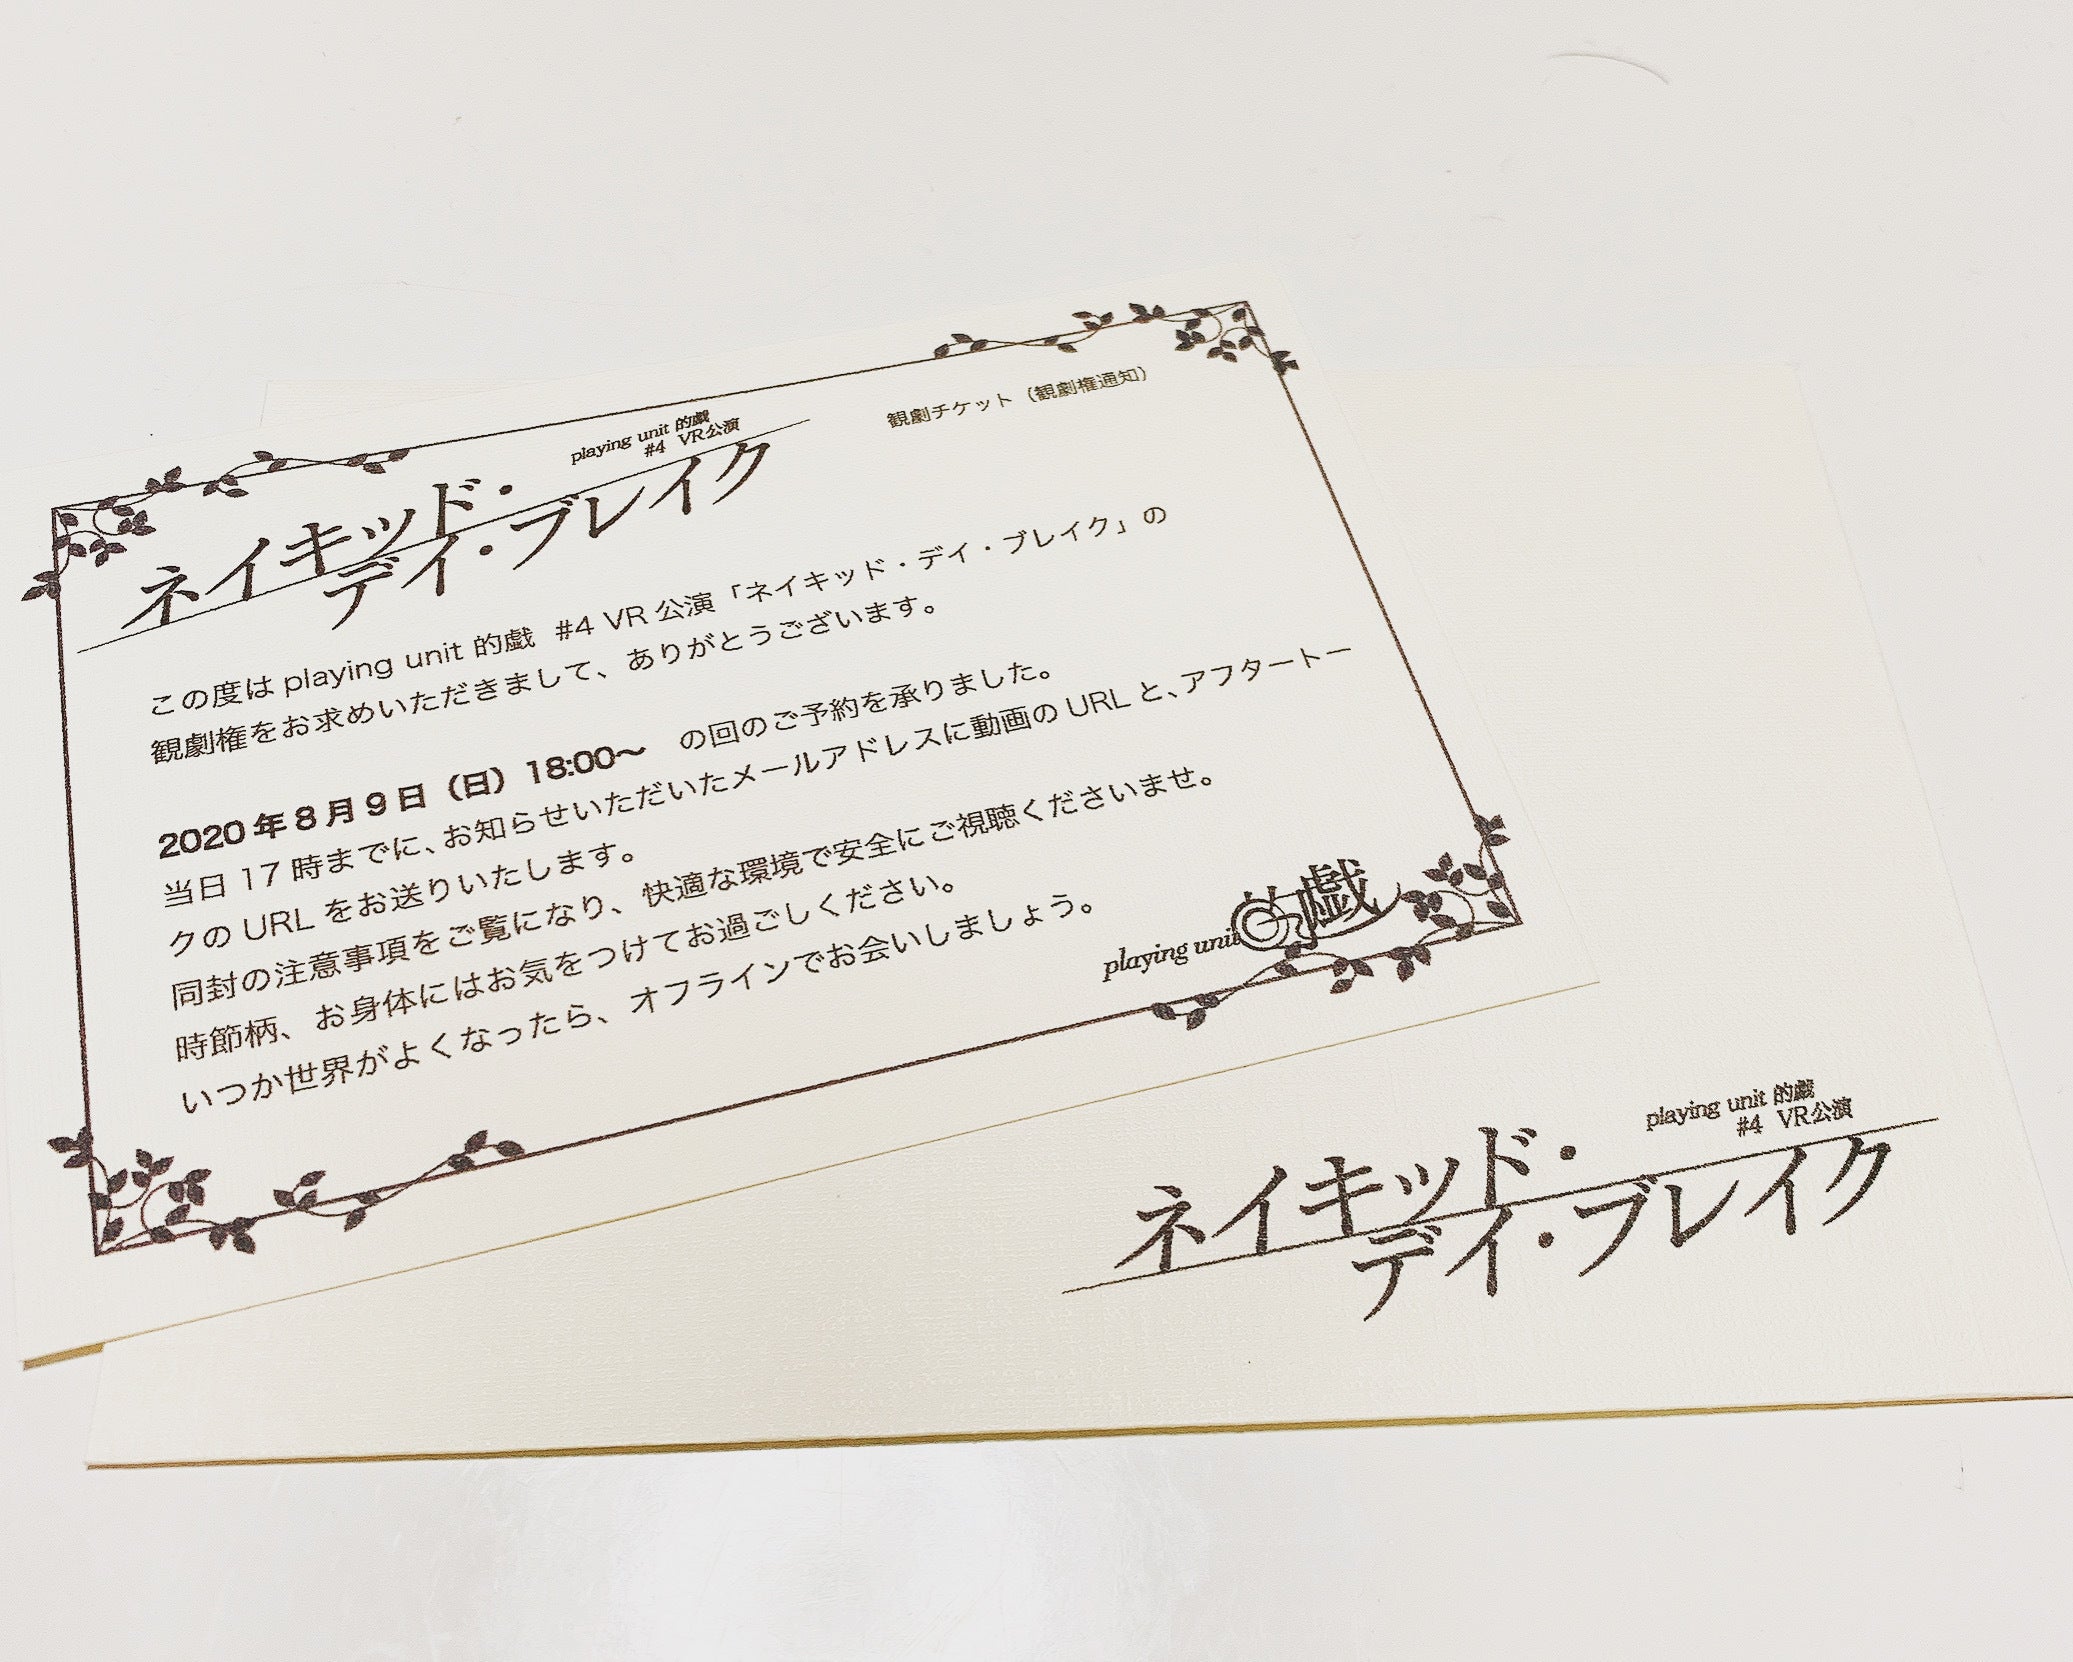 観劇チケット（観劇権通知）
playing unit 的戯
#4 VR公演
ネイキッド・
デイ・ブレイク
この度は playing unit 的戯 #4 VR 公演「ネイキッド・デイ・ブレイク」の
観劇権をお求めいただきまして、ありがとうございます。
2020 年 8 月 9 日（日）18:00〜 の回のご予約を承りました。
当日 17 時までに、お知らせいただいたメールアドレスに動画の URL と、アフタートー
クの URL をお送りいたします。
同封の注意事項をご覧になり、快適な環境で安全にご視聴くださいませ。
時節柄、お身体にはお気をつけてお過ごしください。
いつか世界がよくなったら、オフラインでお会いしましょう。
playing unit 的戯
playing unit 的戯
#4 VR公演
ネイキッド・
デイ・ブレイク